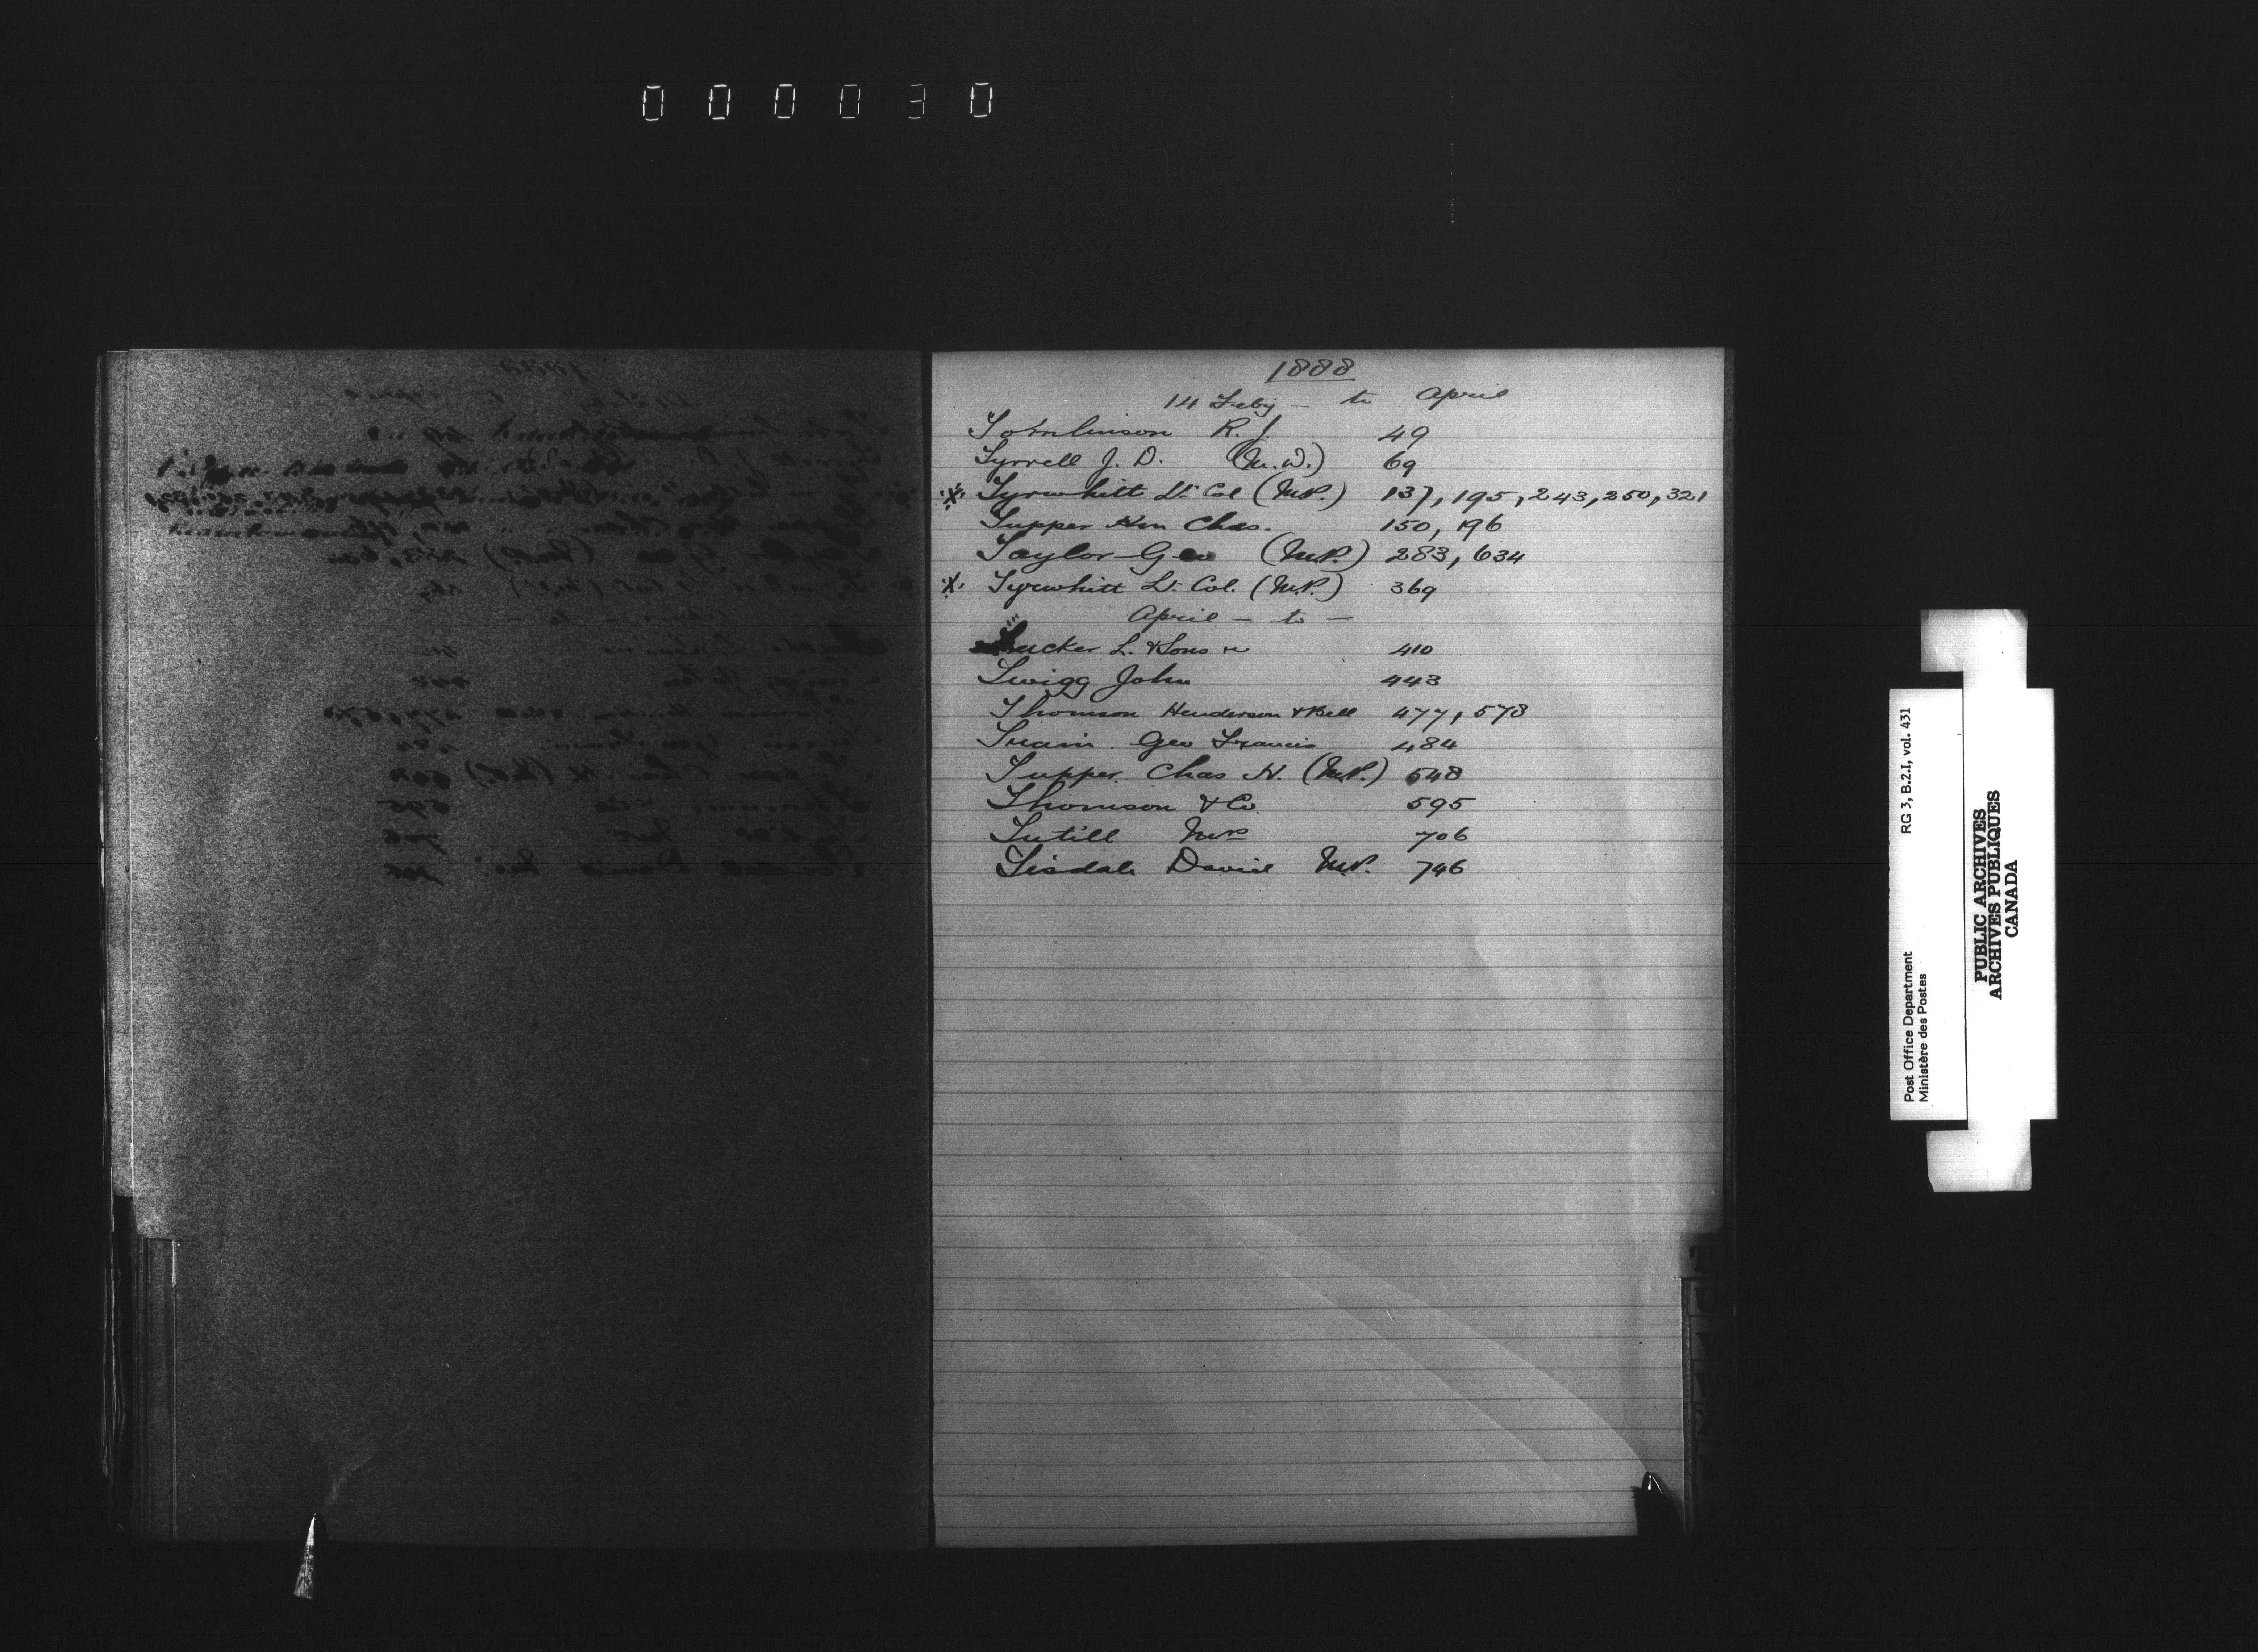 000030
1888
14 Feby — to April
Tomlinson R. J. 49
Tyrrell J. D. (M.D.) 69
Tyrwhitt Lt Col (M.P.) 137, 195, 243, 250, 321
Tupper Hon Chas. 150, 196
Taylor Geo (M.P.) 283, 634
Tyrwhitt Lt Col. (M.P.) 369
April — to —
Tucker L. & Sons 410
Twigg John 443
Thomson Henderson & Bell 477, 578
Train Geo Francis 484
Tupper Chas H. (M.P.) 548
Thomson & Co 595
Tutill Mrs 706
Tisdale David M.P. 746
T
U
Post Office Department
Ministère des Postes
RG 3, B.2.I, vol. 431
PUBLIC ARCHIVES
ARCHIVES PUBLIQUES
CANADA